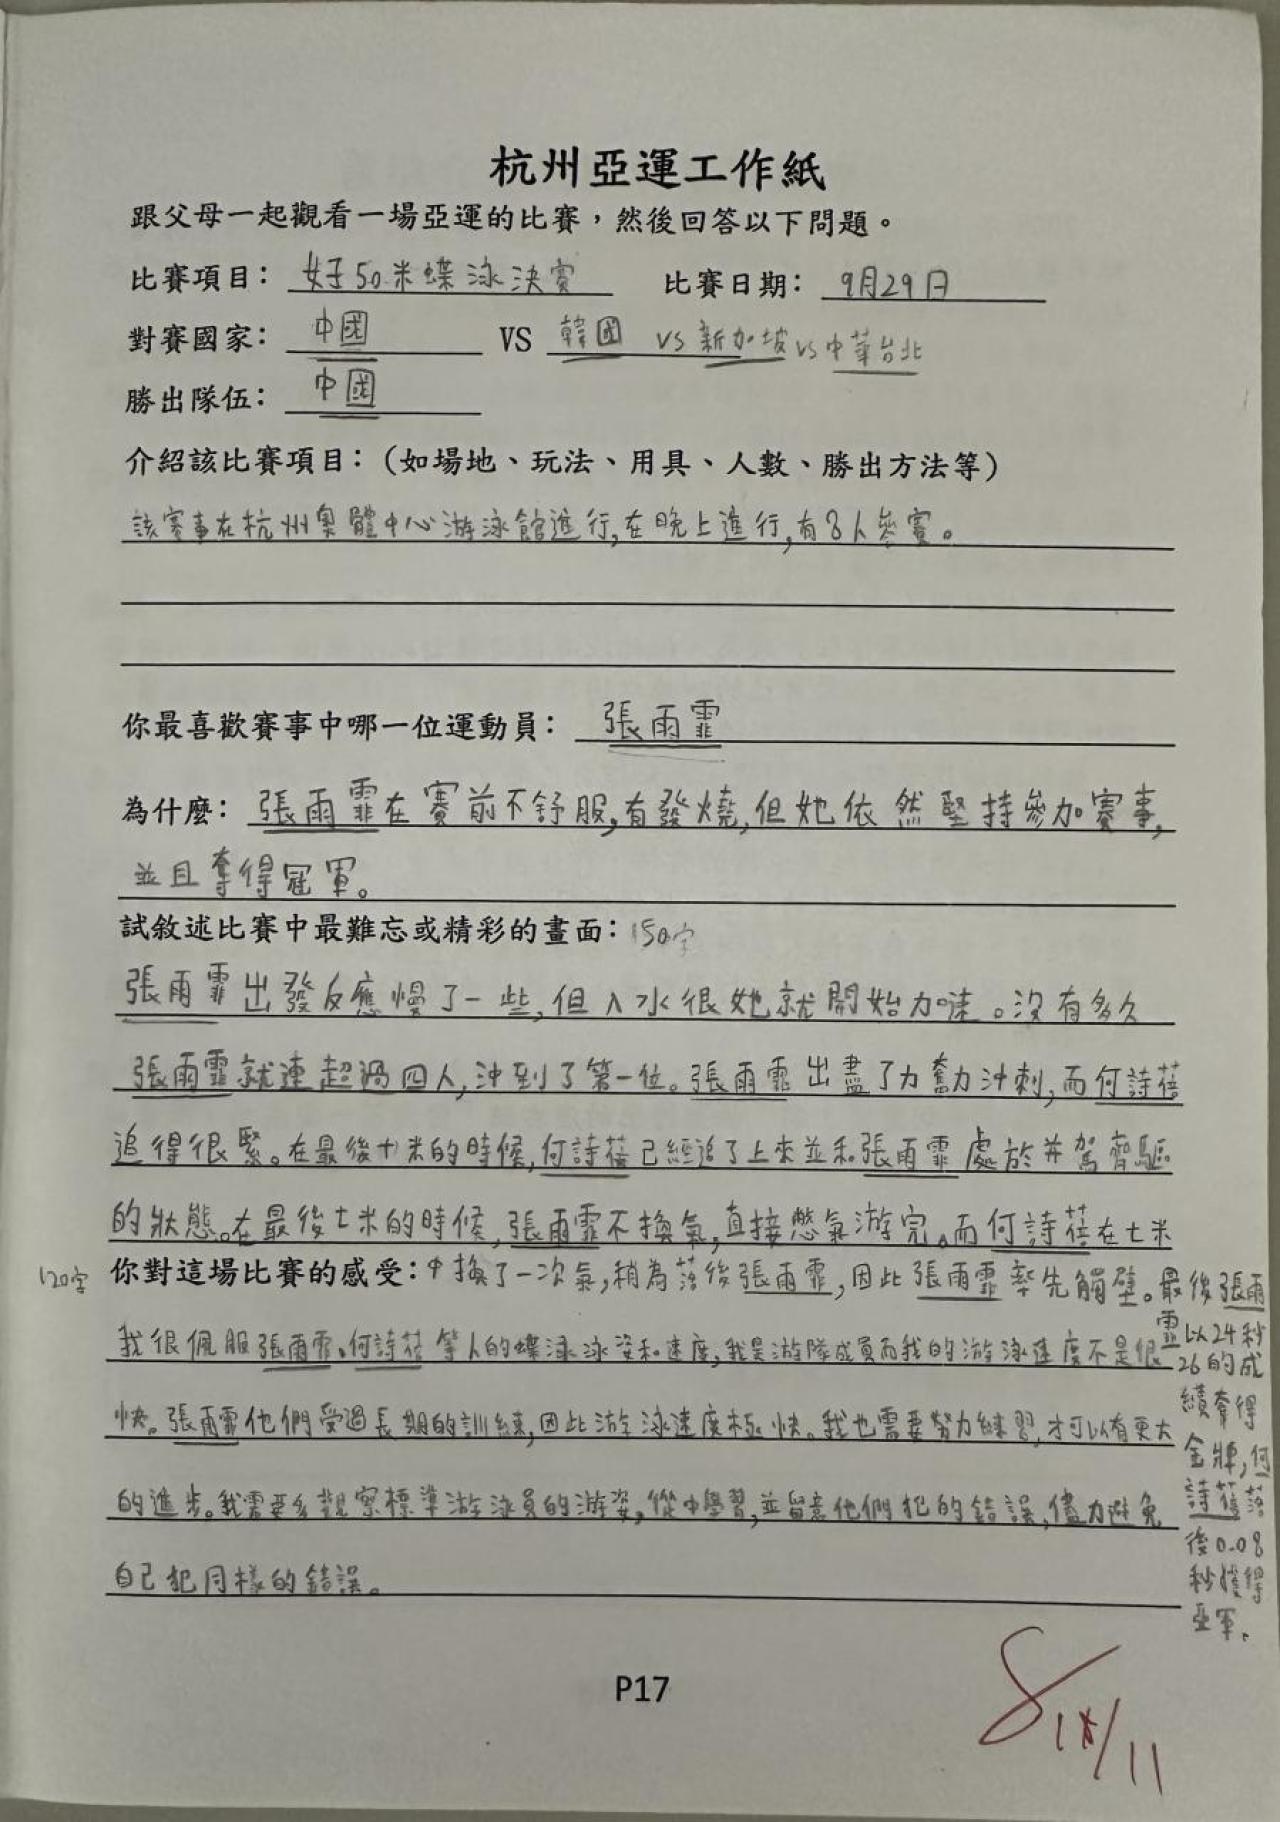 杭州亞運工作紙
跟父母一起觀看一場亞運的比賽，然後回答以下問題。
比賽項目：女子50米蝶泳決賽 比賽日期：9月29日
對賽國家：中國 VS 韓國 vs 新加坡 vs 中華台北
勝出隊伍：中國
介紹該比賽項目：（如場地、玩法、用具、人數、勝出方法等）
該賽事在杭州奧體中心游泳館進行,在晚上進行,有8人參賽。
你最喜歡賽事中哪一位運動員：張雨霏
為什麼：張雨霏在賽前不舒服,有發燒,但她依然堅持參加賽事,
並且奪得冠軍。
試敘述比賽中最難忘或精彩的畫面：150字
張雨霏出發反應慢了一些,但入水很她就開始加速。沒有多久
張雨霏就連超過四人,沖到了第一位。張雨霏出盡了力奮力沖刺,而何詩蓓
追得很緊。在最後十米的時候,何詩蓓已經追了上來並和張雨霏處於并駕齊驅
的狀態。在最後七米的時候,張雨霏不換氣,直接憋氣游完。而何詩蓓在七米
你對這場比賽的感受：中換了一次氣,稍為落後張雨霏,因此張雨霏率先觸壁。最後張雨
霏以24秒
26的成
績奪得
金牌,何
詩蓓落
後0.08
秒獲得
亞軍。
120字
我很佩服張雨霏,何詩蓓等人的蝶泳泳姿和速度,我是游隊成員而我的游泳速度不是很
快。張雨霏他們受過長期的訓練,因此游泳速度極快。我也需要努力練習,才可以有更大
的進步。我需要多觀察標準游泳員的游姿,從中學習,並留意他們犯的錯誤,儘力避免
自己犯同樣的錯誤。
P17